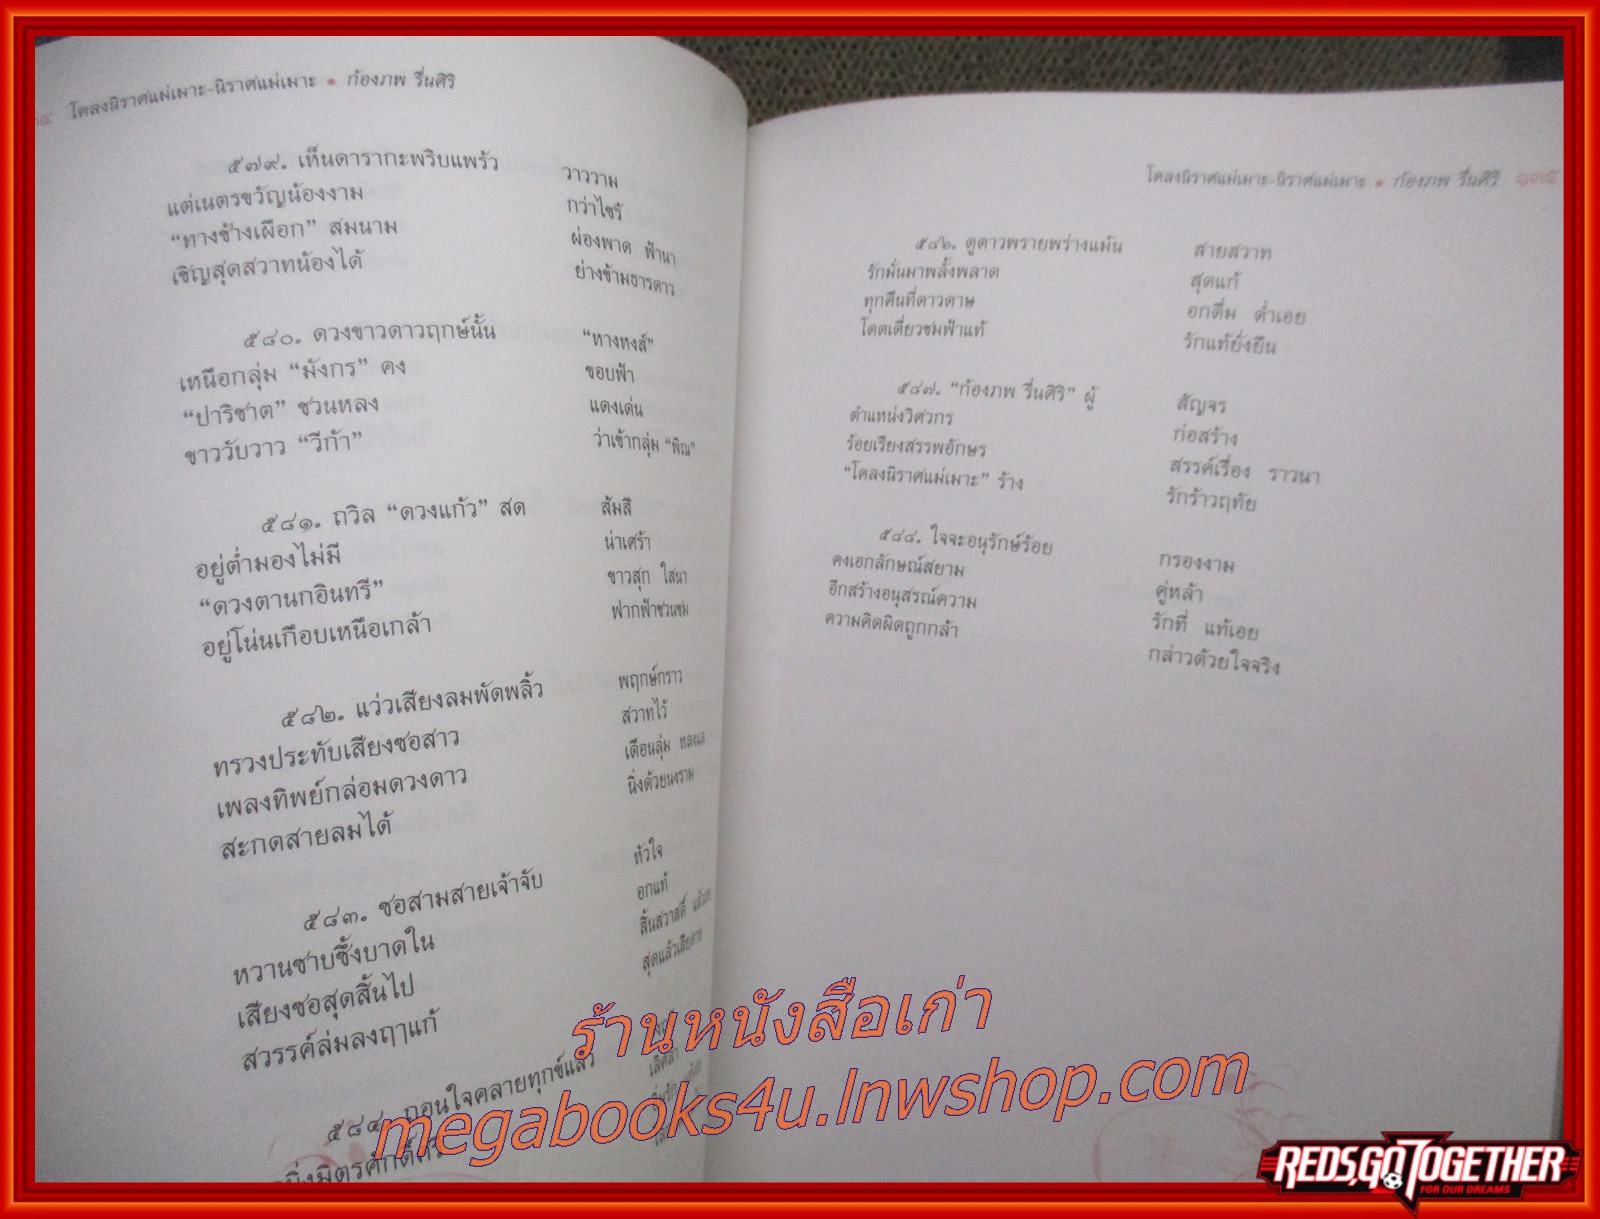 โคลงนิราศแม่เมาะ-นิราศแม่เมาะ • ก้องภพ รื่นศิริ
๕๗๙. เห็นดารากะพริบแพร้ว วาววาม
แต่เนตรขวัญน้องงาม กว่าไซร้
“ทางช้างเผือก” สมนาม ผ่องพาด ฟ้านา
เชิญสุดสวาทน้องได้ ย่างข้ามธารดาว
๕๘๐. ดวงขาวดาวฤกษ์นั้น “หางหงส์”
เหนือกลุ่ม “มังกร” คง ขอบฟ้า
“ปาริชาต” ชวนหลง แดงเด่น
ขาววับวาว “วีก้า” ว่าเข้ากลุ่ม “พิณ”
๕๘๑. ถวิล “ดวงแก้ว” สด ส้มสี
อยู่ต่ำมองไม่มี น่าเศร้า
“ดวงตานกอินทรี” ขาวสุก ใสนา
อยู่โน่นเกือบเหนือเกล้า ฟากฟ้าชวนชม
๕๘๒. แว่วเสียงลมพัดพลิ้ว พฤกษ์กราว
ทรวงประทับเสียงซอสาว สวาทไว้
เพลงทิพย์กล่อมดวงดาว เดือนลุ่ม หลงแล
สะกดสายลมได้ นิ่งด้วยนงราม
๕๘๓. ซอสามสายเจ้าจับ หัวใจ
หวานซาบซึ้งบาดใน อกแท้
เสียงซอสุดสิ้นไป สิ้นสวาสดิ์
สวรรค์ล่มลงฤๅแก้ สุดแล้วเสียดาย
๕๘๔. ถอนใจคลายทุกข์แล้ว
โคลงนิราศแม่เมาะ-นิราศแม่เมาะ • ก้องภพ รื่นศิริ ๑๓๕
๕๘๖. ดูดาวพรายพร่างแม้น สายสวาท
รักมั่นมาพลั้งพลาด สุดแก้
ทุกคืนที่ดาวดาษ อกดื่ม ด่ำเอย
โดดเดี่ยวชมฟ้าแท้ รักแท้ยั่งยืน
๕๘๗. “ก้องภพ รื่นศิริ” ผู้ สัญจร
ตำแหน่งวิศวกร ก่อสร้าง
ร้อยเรียงสรรพอักษร สรรค์เรื่อง ราวนา
“โคลงนิราศแม่เมาะ” ร้าง รักร้าวฤทัย
๕๘๘. ใจจะอนุรักษ์ร้อย กรองงาม
คงเอกลักษณ์สยาม คู่หล้า
อีกสร้างอนุสรณ์ความ รักที่ แท้เอย
ความคิดผิดถูกกล้า กล่าวด้วยใจจริง
ร้านหนังสือเก่า
megabooks4u.lnwshop.com
REDS,GO TOGETHER
FOR OUR DREAMS